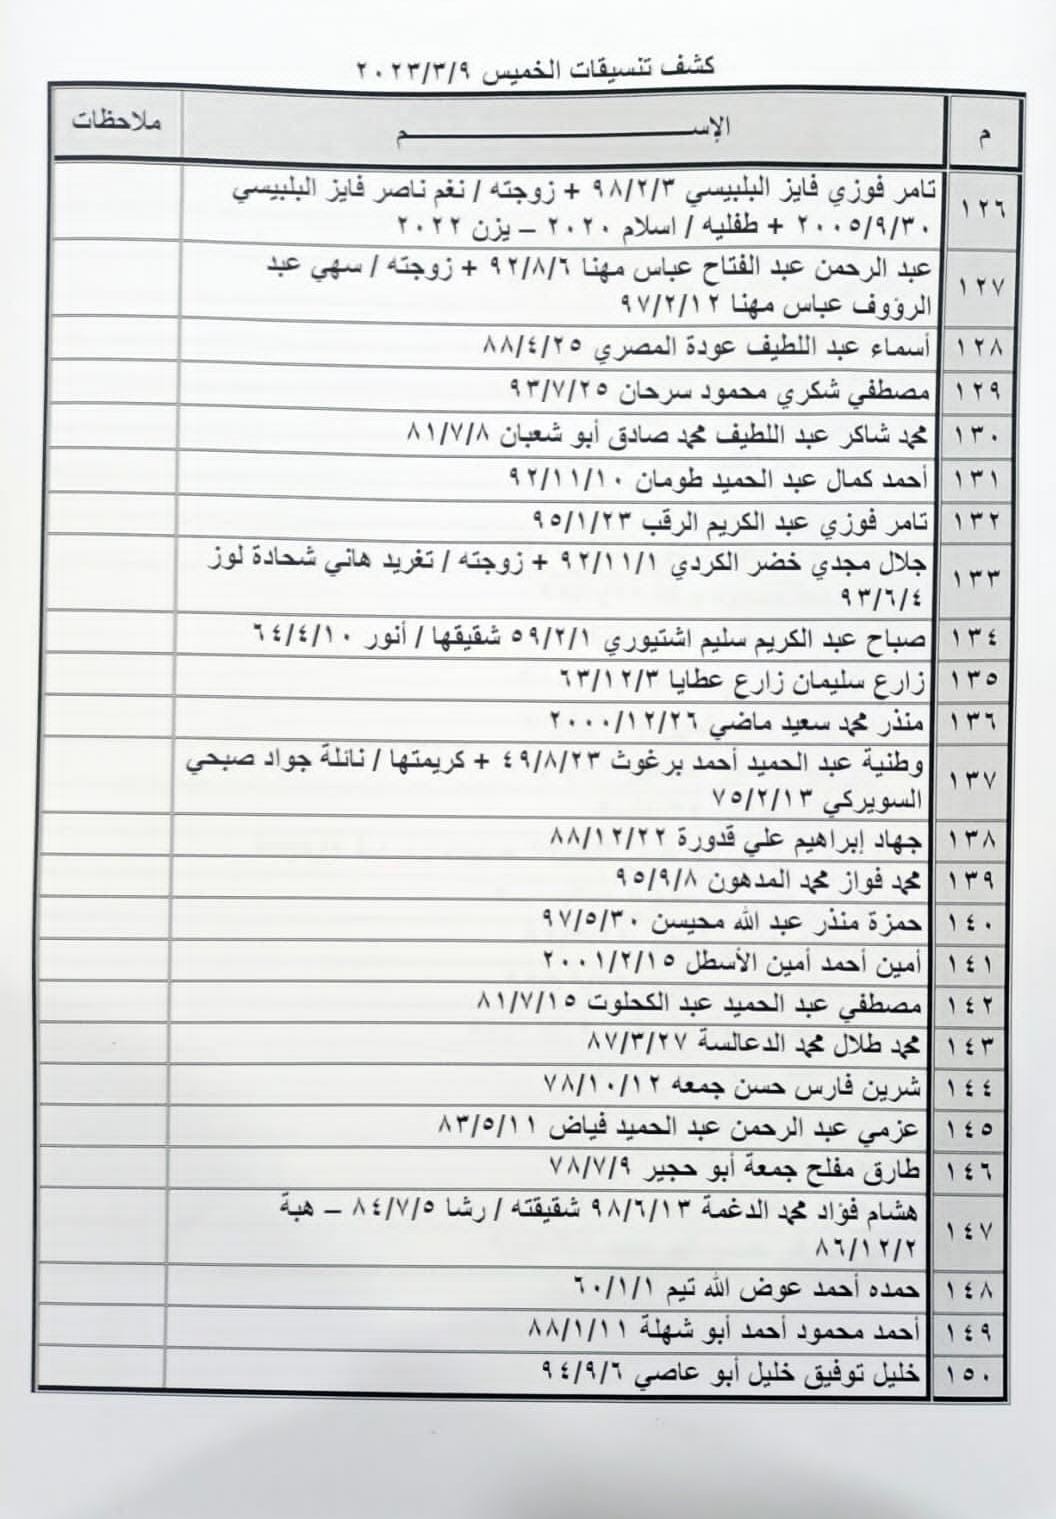 كشف تنسيقات الخميس ٢٠٢٣/٣/٩
م الإســـــــــــم ملاحظات
١٢٦ تامر فوزي فايز البلبيسي ٩٨/٢/٣ + زوجته / نغم ناصر فايز البلبيسي
٢٠٠٥/٩/٣٠ + طفليه / اسلام ٢٠٢٠ – يزن ٢٠٢٢
١٢٧ عبد الرحمن عبد الفتاح عباس مهنا ٩٢/٨/٦ + زوجته / سهي عبد
الرؤوف عباس مهنا ٩٧/٢/١٢
١٢٨ أسماء عبد اللطيف عودة المصري ٨٨/٤/٢٥
١٢٩ مصطفي شكري محمود سرحان ٩٣/٧/٢٥
١٣٠ محمد شاكر عبد اللطيف محمد صادق أبو شعبان ٨١/٧/٨
١٣١ أحمد كمال عبد الحميد طومان ٩٢/١١/١٠
١٣٢ تامر فوزي عبد الكريم الرقب ٩٥/١/٢٣
١٣٣ جلال مجدي خضر الكردي ٩٢/١١/١ + زوجته / تغريد هاني شحادة لوز
٩٣/٦/٤
١٣٤ صباح عبد الكريم سليم اشتيوري ٥٩/٢/١ شقيقها / أنور ٦٤/٤/١٠
١٣٥ زارع سليمان زارع عطايا ٦٣/١٢/٣
١٣٦ منذر محمد سعيد ماضي ٢٠٠٠/١٢/٢٦
١٣٧ وطنية عبد الحميد أحمد برغوث ٤٩/٨/٢٣ + كريمتها / نائلة جواد صبحي
السويركي ٧٥/٢/١٣
١٣٨ جهاد إبراهيم علي قدورة ٨٨/١٢/٢٢
١٣٩ محمد فواز محمد المدهون ٩٥/٩/٨
١٤٠ حمزة منذر عبد الله محيسن ٩٧/٥/٣٠
١٤١ أمين أحمد أمين الأسطل ٢٠٠١/٢/١٥
١٤٢ مصطفي عبد الحميد عبد الكحلوت ٨١/٧/١٥
١٤٣ محمد طلال محمد الدعالسة ٨٧/٣/٢٧
١٤٤ شرين فارس حسن جمعه ٧٨/١٠/١٢
١٤٥ عزمي عبد الرحمن عبد الحميد فياض ٨٣/٥/١١
١٤٦ طارق مفلح جمعة أبو حجير ٧٨/٧/٩
١٤٧ هشام فؤاد محمد الدغمة ٩٨/٦/١٣ شقيقته / رشا ٨٤/٧/٥ – هبة
٨٦/١٢/٢
١٤٨ حمده أحمد عوض الله تيم ٦٠/١/١
١٤٩ أحمد محمود أحمد أبو شهلة ٨٨/١/١١
١٥٠ خليل توفيق خليل أبو عاصي ٩٤/٩/٦